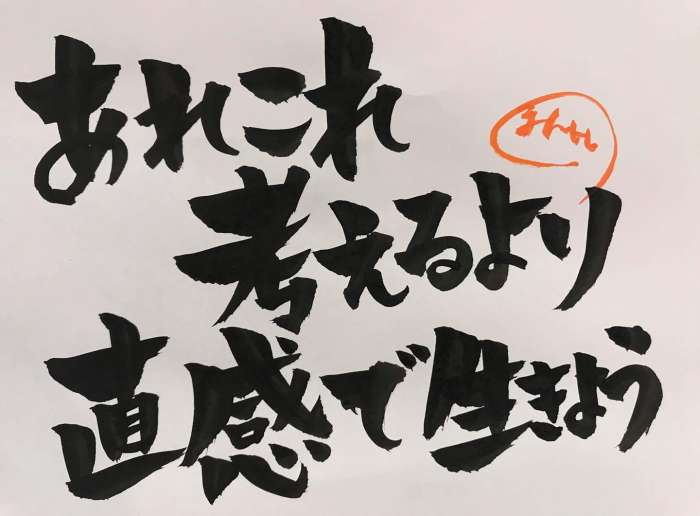 あれこれ
考えるより
直感で生きよう